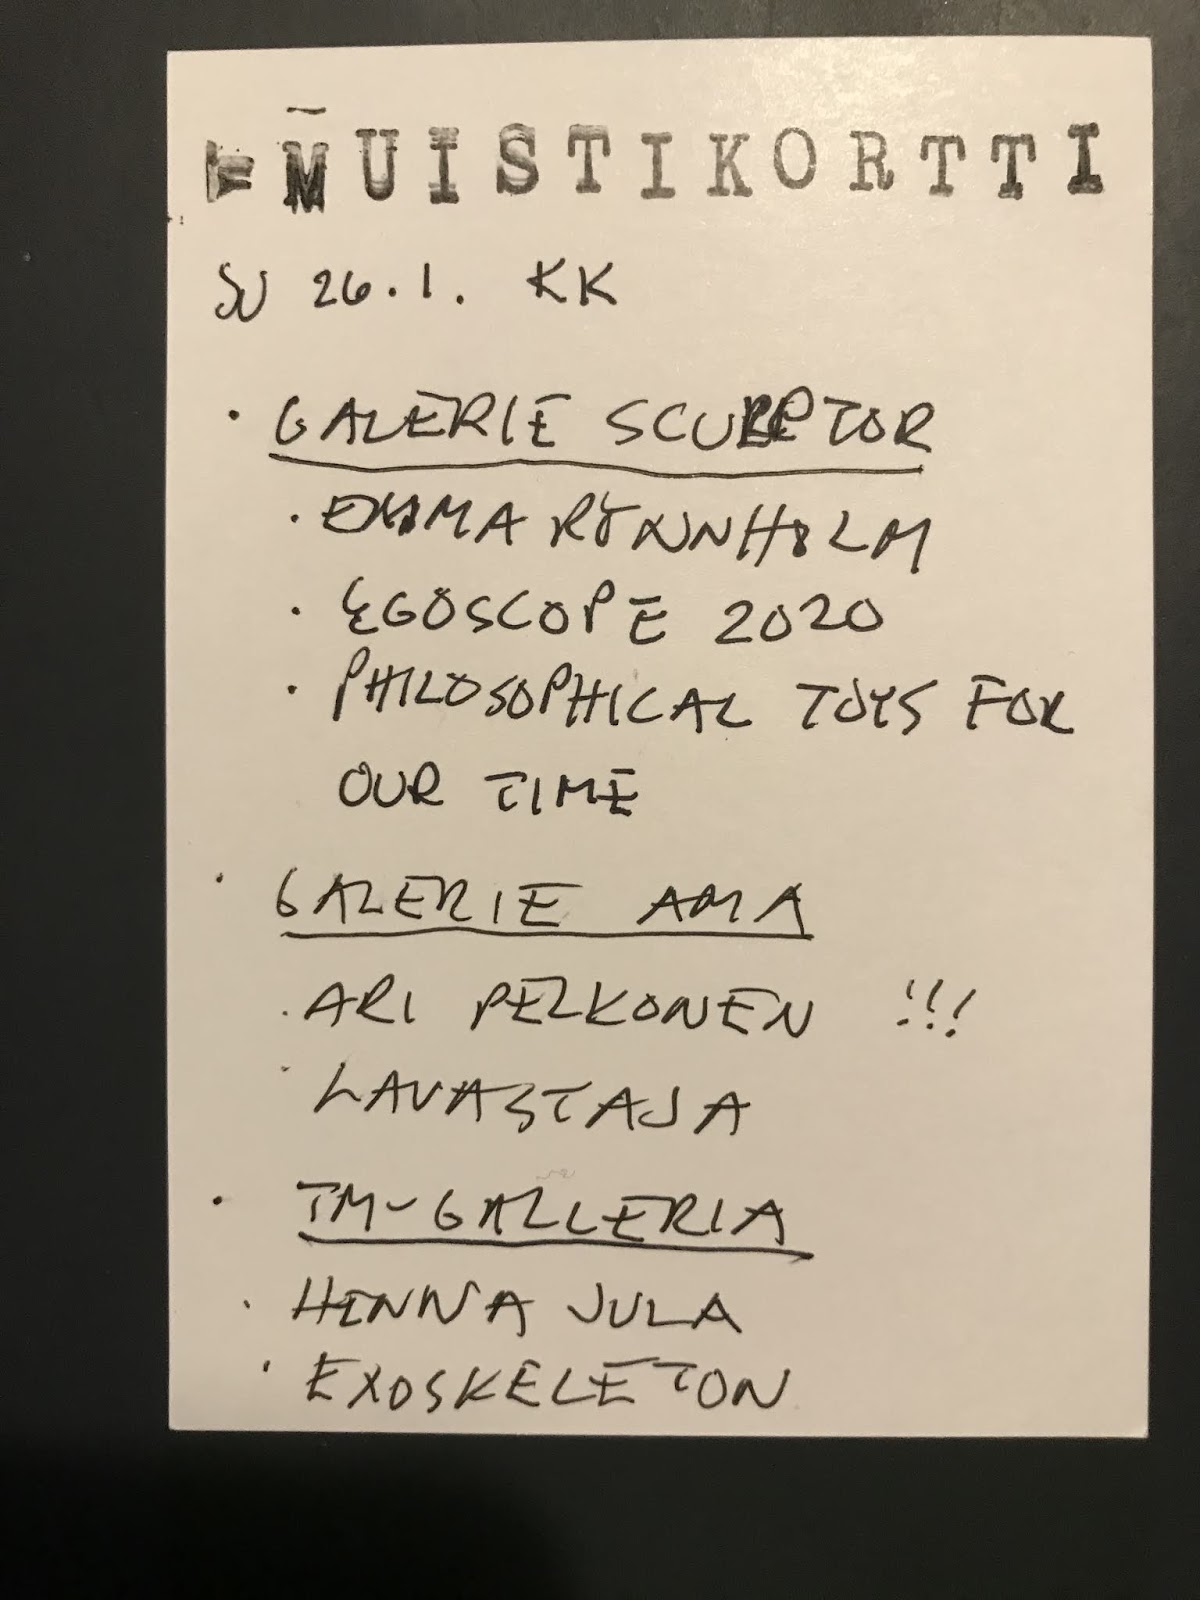 MUISTIKORTTI
SU 26.1. KK
· GALERIE SCULPTOR
· EMMA RÖNNHOLM
· EGOSCOPE 2020
· PHILOSOPHICAL TOYS FOR
OUR TIME
· GALERIE AMA
· ARI PELKONEN !!!
· LAVASTAJA
· TM-GALLERIA
· HENNA JULA
· EXOSKELETON